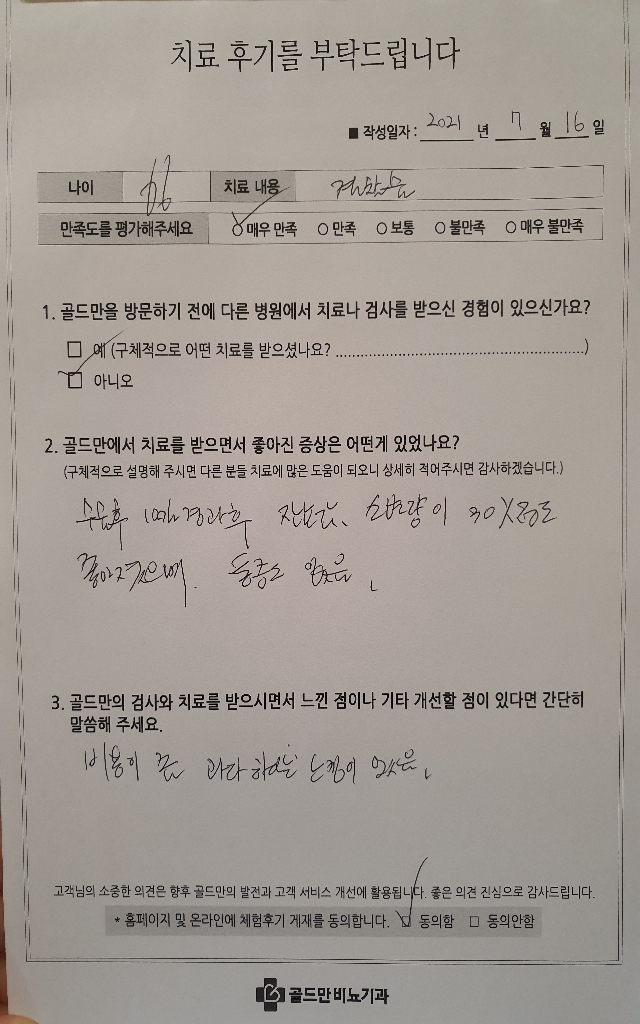 치료 후기를 부탁드립니다
■ 작성일자 : 2021 년 7 월 16 일
나이 66 치료 내용 전립선
만족도를 평가해주세요 ○ 매우 만족 ○ 만족 ○ 보통 ○ 불만족 ○ 매우 불만족
1. 골드만을 방문하기 전에 다른 병원에서 치료나 검사를 받으신 경험이 있으신가요?
□ 예 (구체적으로 어떤 치료를 받으셨나요? ........................................................)
□ 아니오
2. 골드만에서 치료를 받으면서 좋아진 증상은 어떤게 있었나요?
(구체적으로 설명해 주시면 다른 분들 치료에 많은 도움이 되오니 상세히 적어주시면 감사하겠습니다.)
수술후 경과후 잔뇨감, 소변량이 30% 정도
좋아졌으며, 통증도 없었음.
3. 골드만의 검사와 치료를 받으시면서 느낀 점이나 기타 개선할 점이 있다면 간단히
말씀해 주세요.
비용이 좀 과다하다는 느낌이 있음.
고객님의 소중한 의견은 향후 골드만의 발전과 고객 서비스 개선에 활용됩니다. 좋은 의견 진심으로 감사드립니다.
* 홈페이지 및 온라인에 체험후기 게재를 동의합니다. □ 동의함 □ 동의안함
골드만비뇨기과